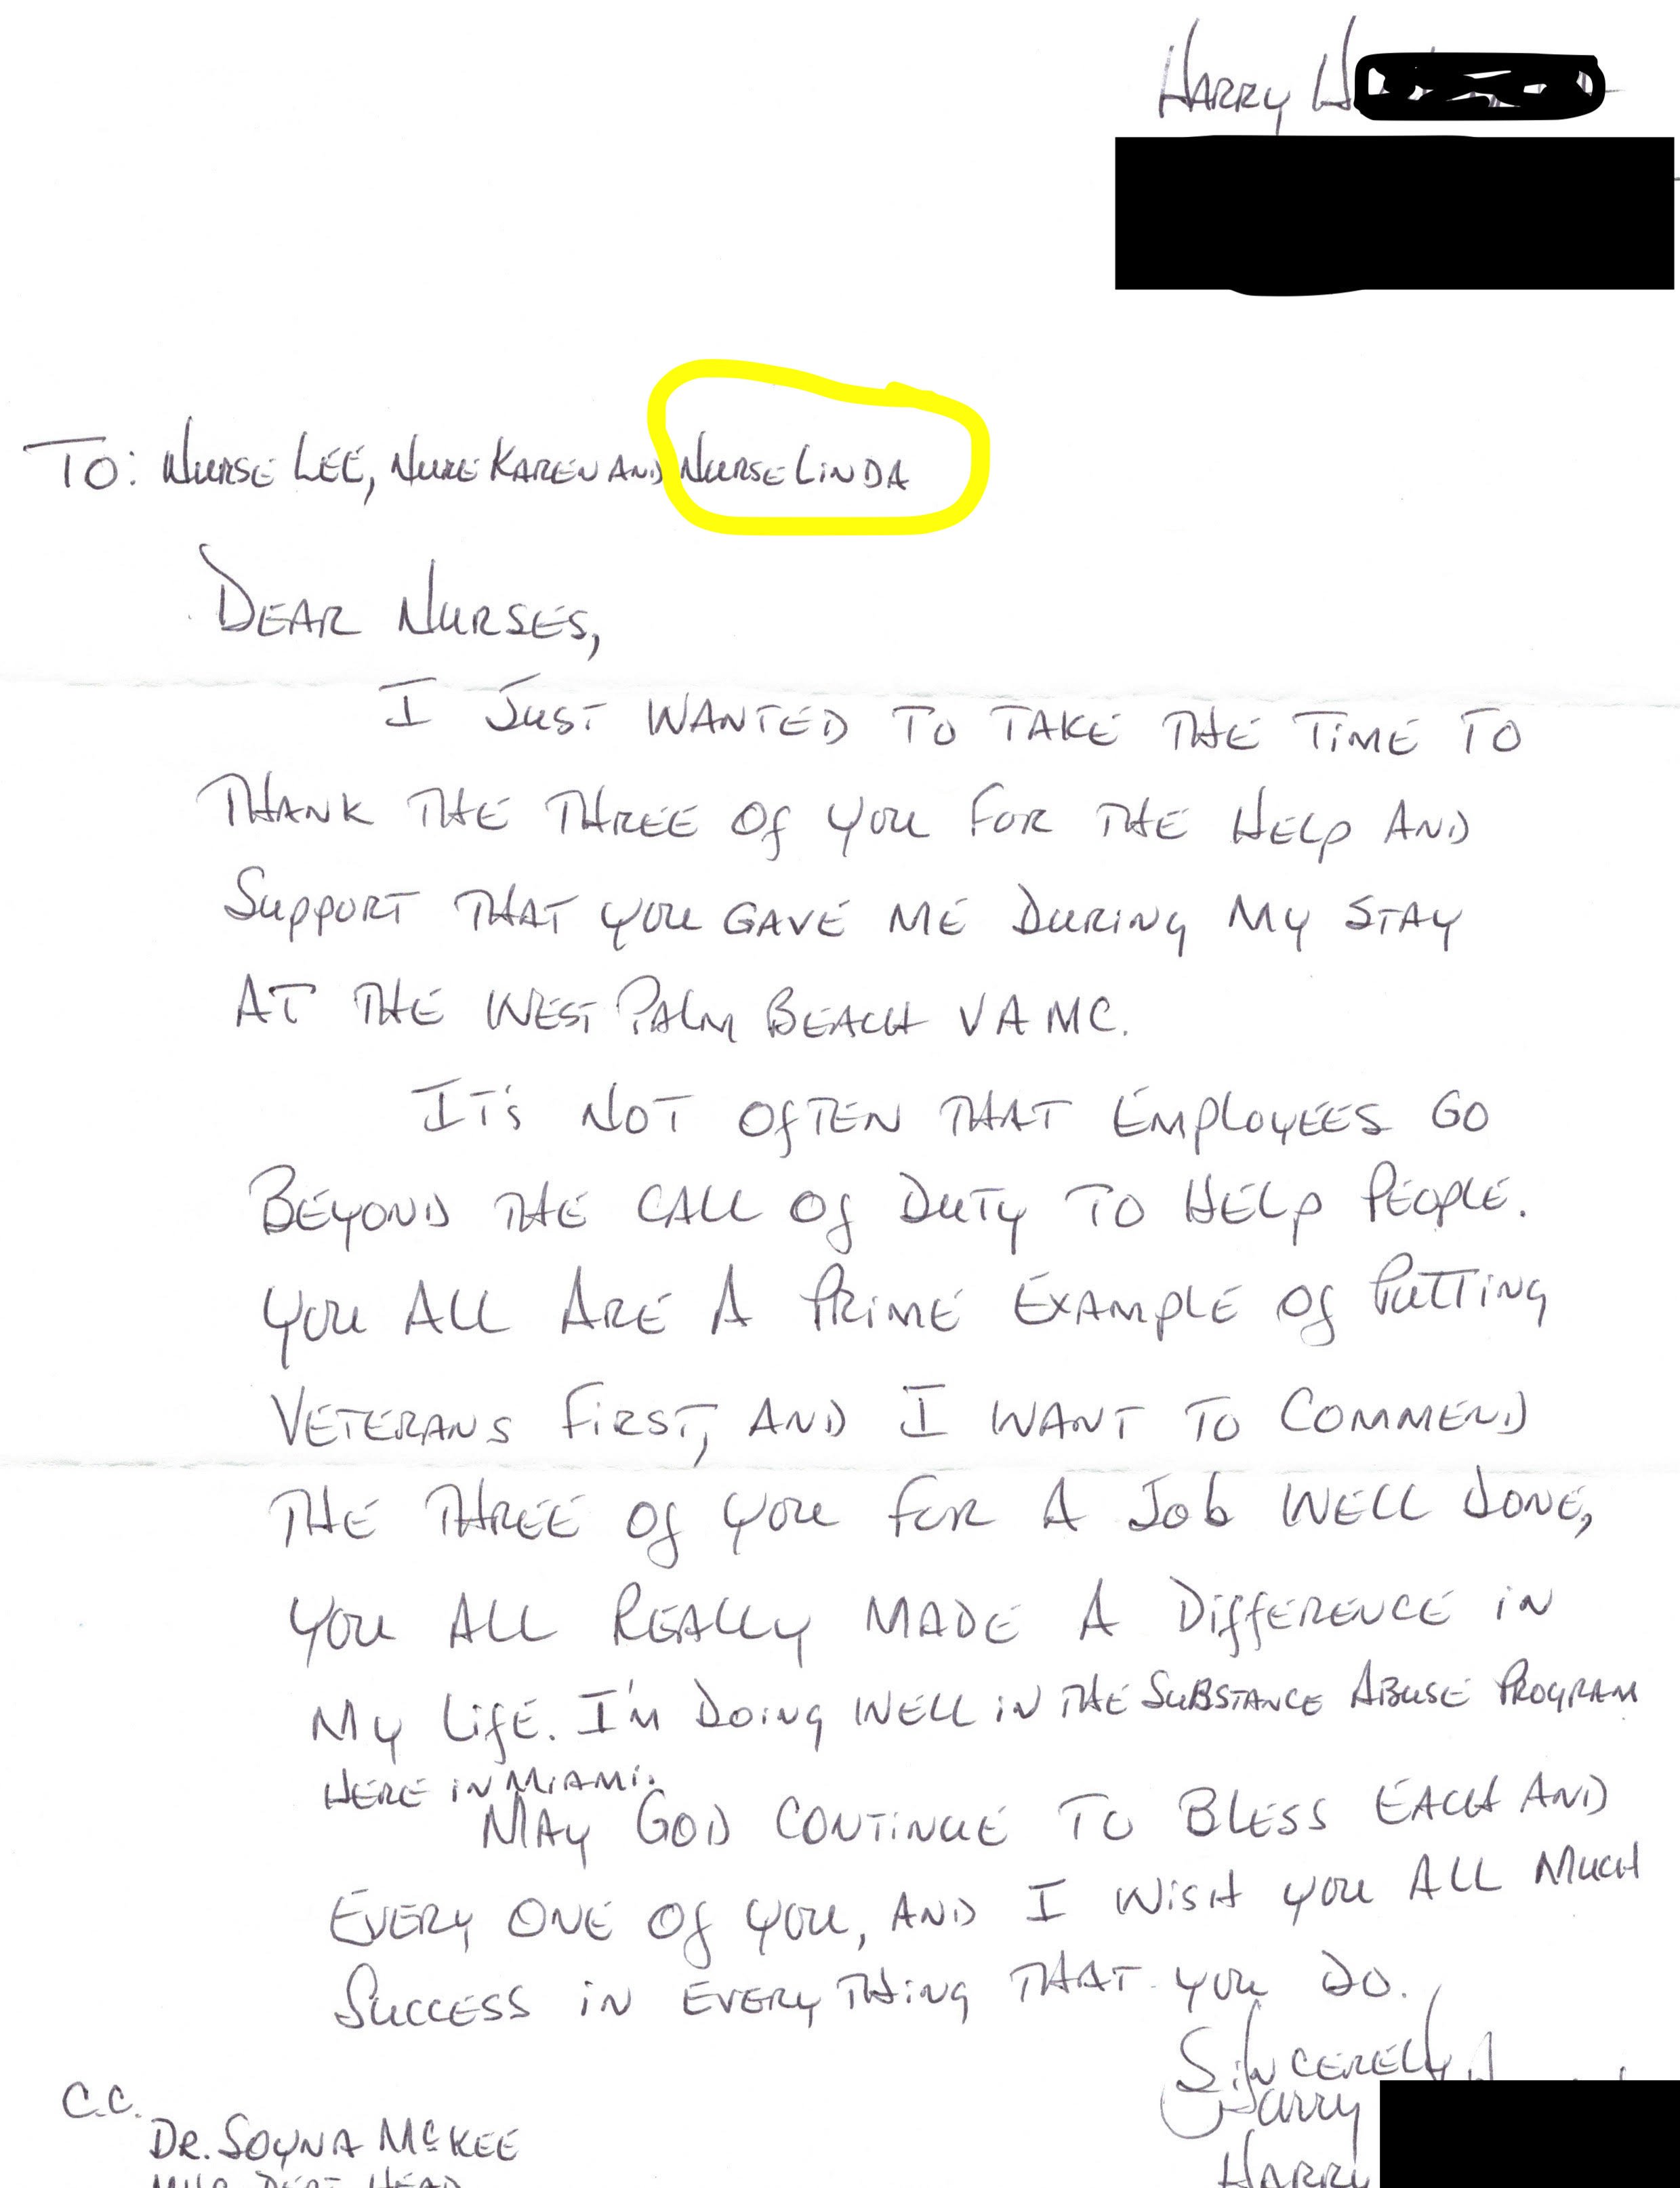 HARRY H
TO: NURSE LEE, NURE KAREN AND NURSE LINDA
DEAR NURSES,
I JUST WANTED TO TAKE THE TIME TO
THANK THE THREE OF YOU FOR THE HELP AND
SUPPORT THAT YOU GAVE ME DURING MY STAY
AT THE WEST PALM BEACH VAMC.
IT'S NOT OFTEN THAT EMPLOYEES GO
BEYOND THE CALL OF DUTY TO HELP PEOPLE.
YOU ALL ARE A PRIME EXAMPLE OF PUTTING
VETERANS FIRST, AND I WANT TO COMMEND
THE THREE OF YOU FOR A JOB WELL DONE,
YOU ALL REALLY MADE A DIFFERENCE IN
MY LIFE. I'M DOING WELL IN THE SUBSTANCE ABUSE PROGRAM
HERE IN MIAMI.
MAY GOD CONTINUE TO BLESS EACH AND
EVERY ONE OF YOU, AND I WISH YOU ALL MUCH
SUCCESS IN EVERYTHING THAT YOU DO.
SINCERELY,
Harry
HARRY
C.C.
DR. SOYNA MCKEE
DEPT HEAD